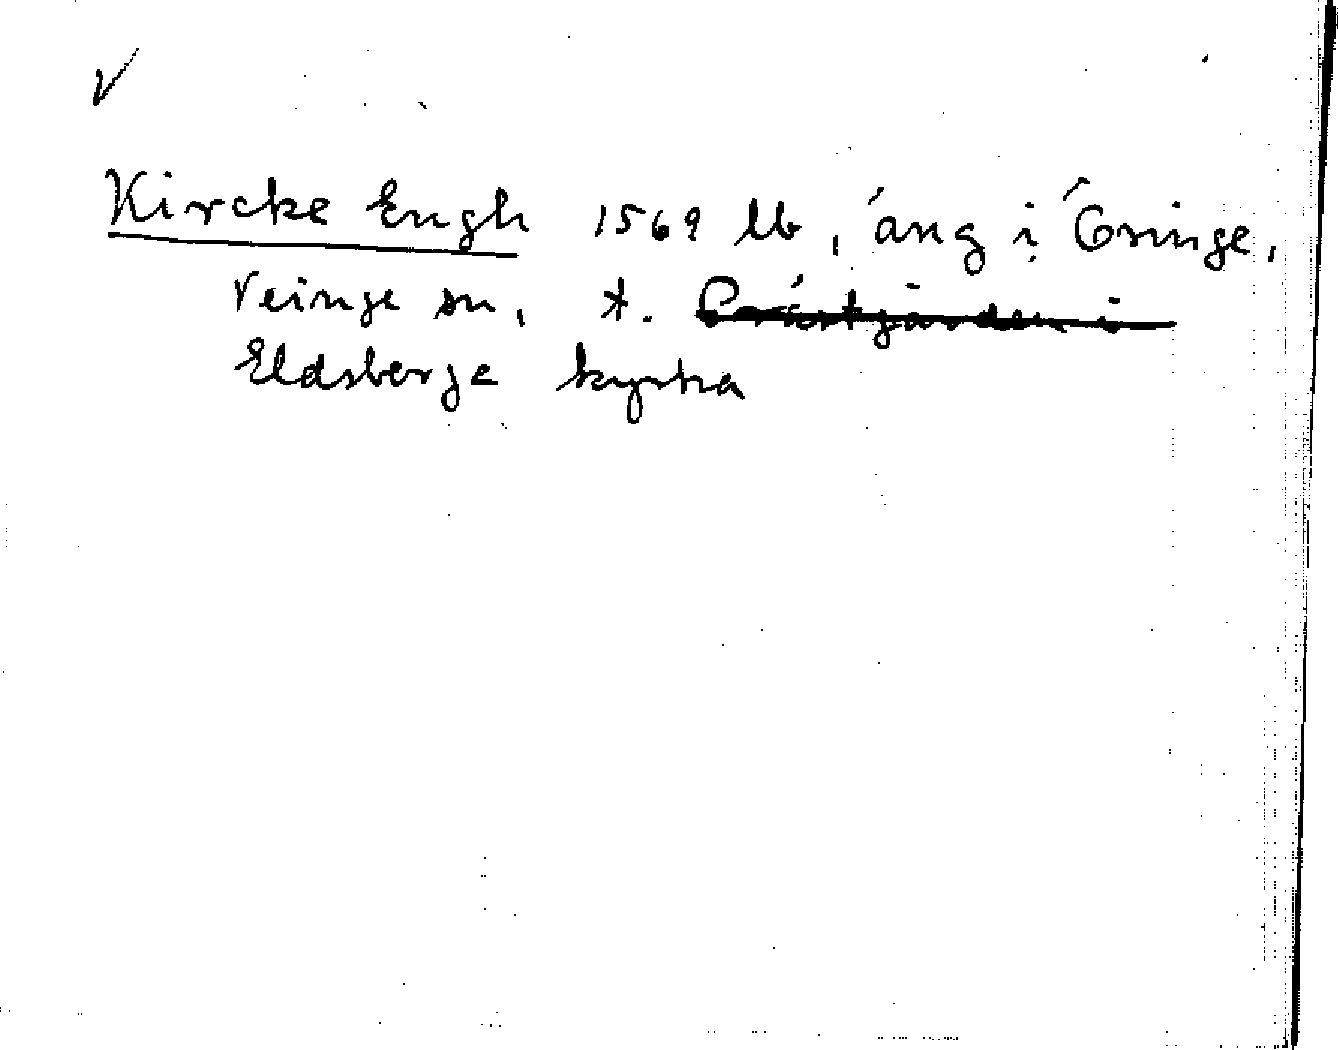 V
Kircke Engh 1569 lb, äng i Öringe,
Veinge sn, t. Prästgården i
Eldsberge kyrka